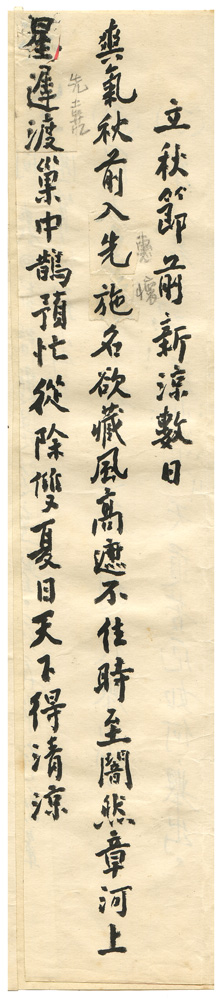 立秋節前新涼數日
爽氣秋前入先施名欲藏風高遮不住時至闇然章河上
星遲渡巢中鵲預忙從除雙夏日天下得清涼